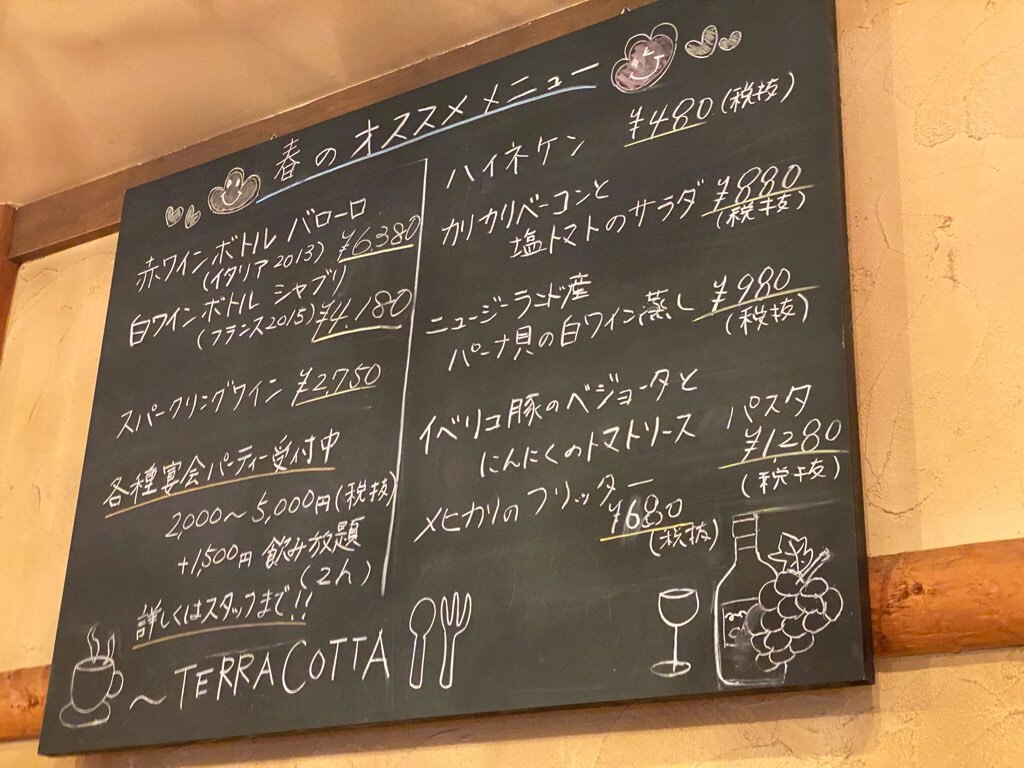 春のオススメメニュー
赤ワインボトル バローロ
(イタリア2013) ¥6,380
白ワインボトル シャブリ
(フランス2015) ¥4,180
スパークリングワイン ¥2,750
各種宴会パーティー受付中
2,000〜5,000円(税抜)
+1,500円 飲み放題
(2h)
詳しくはスタッフまで!!
〜TERRA COTTA
ハイネケン ¥480(税抜)
カリカリベーコンと
塩トマトのサラダ ¥880
(税抜)
ニュージーランド産
パーナ貝の白ワイン蒸し ¥980
(税抜)
イベリコ豚のベジョータと
にんにくのトマトソース パスタ
¥1280
(税抜)
メヒカリのフリッター
¥680
(税抜)